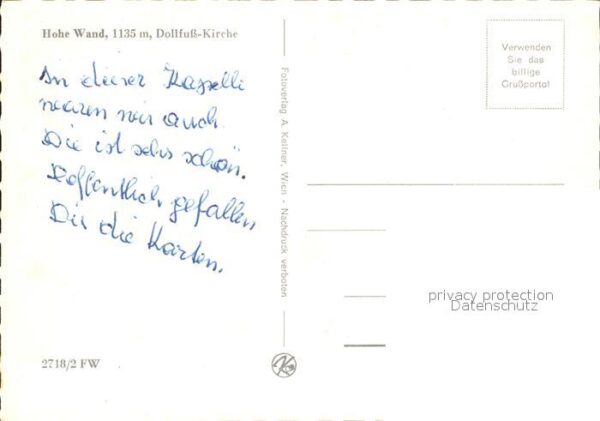 Hohe Wand, 1135 m, Dollfuß-Kirche
In dieser Kapelli
waren wir auch.
Die ist sehr schön.
Hoffentlich gefallen
Dir die Karten.
2718/2 FW
Fotoverlag A. Kellner, Wien - Nachdruck verboten
Verwenden
Sie das
billige
Grußporto!
privacy protection
Datenschutz